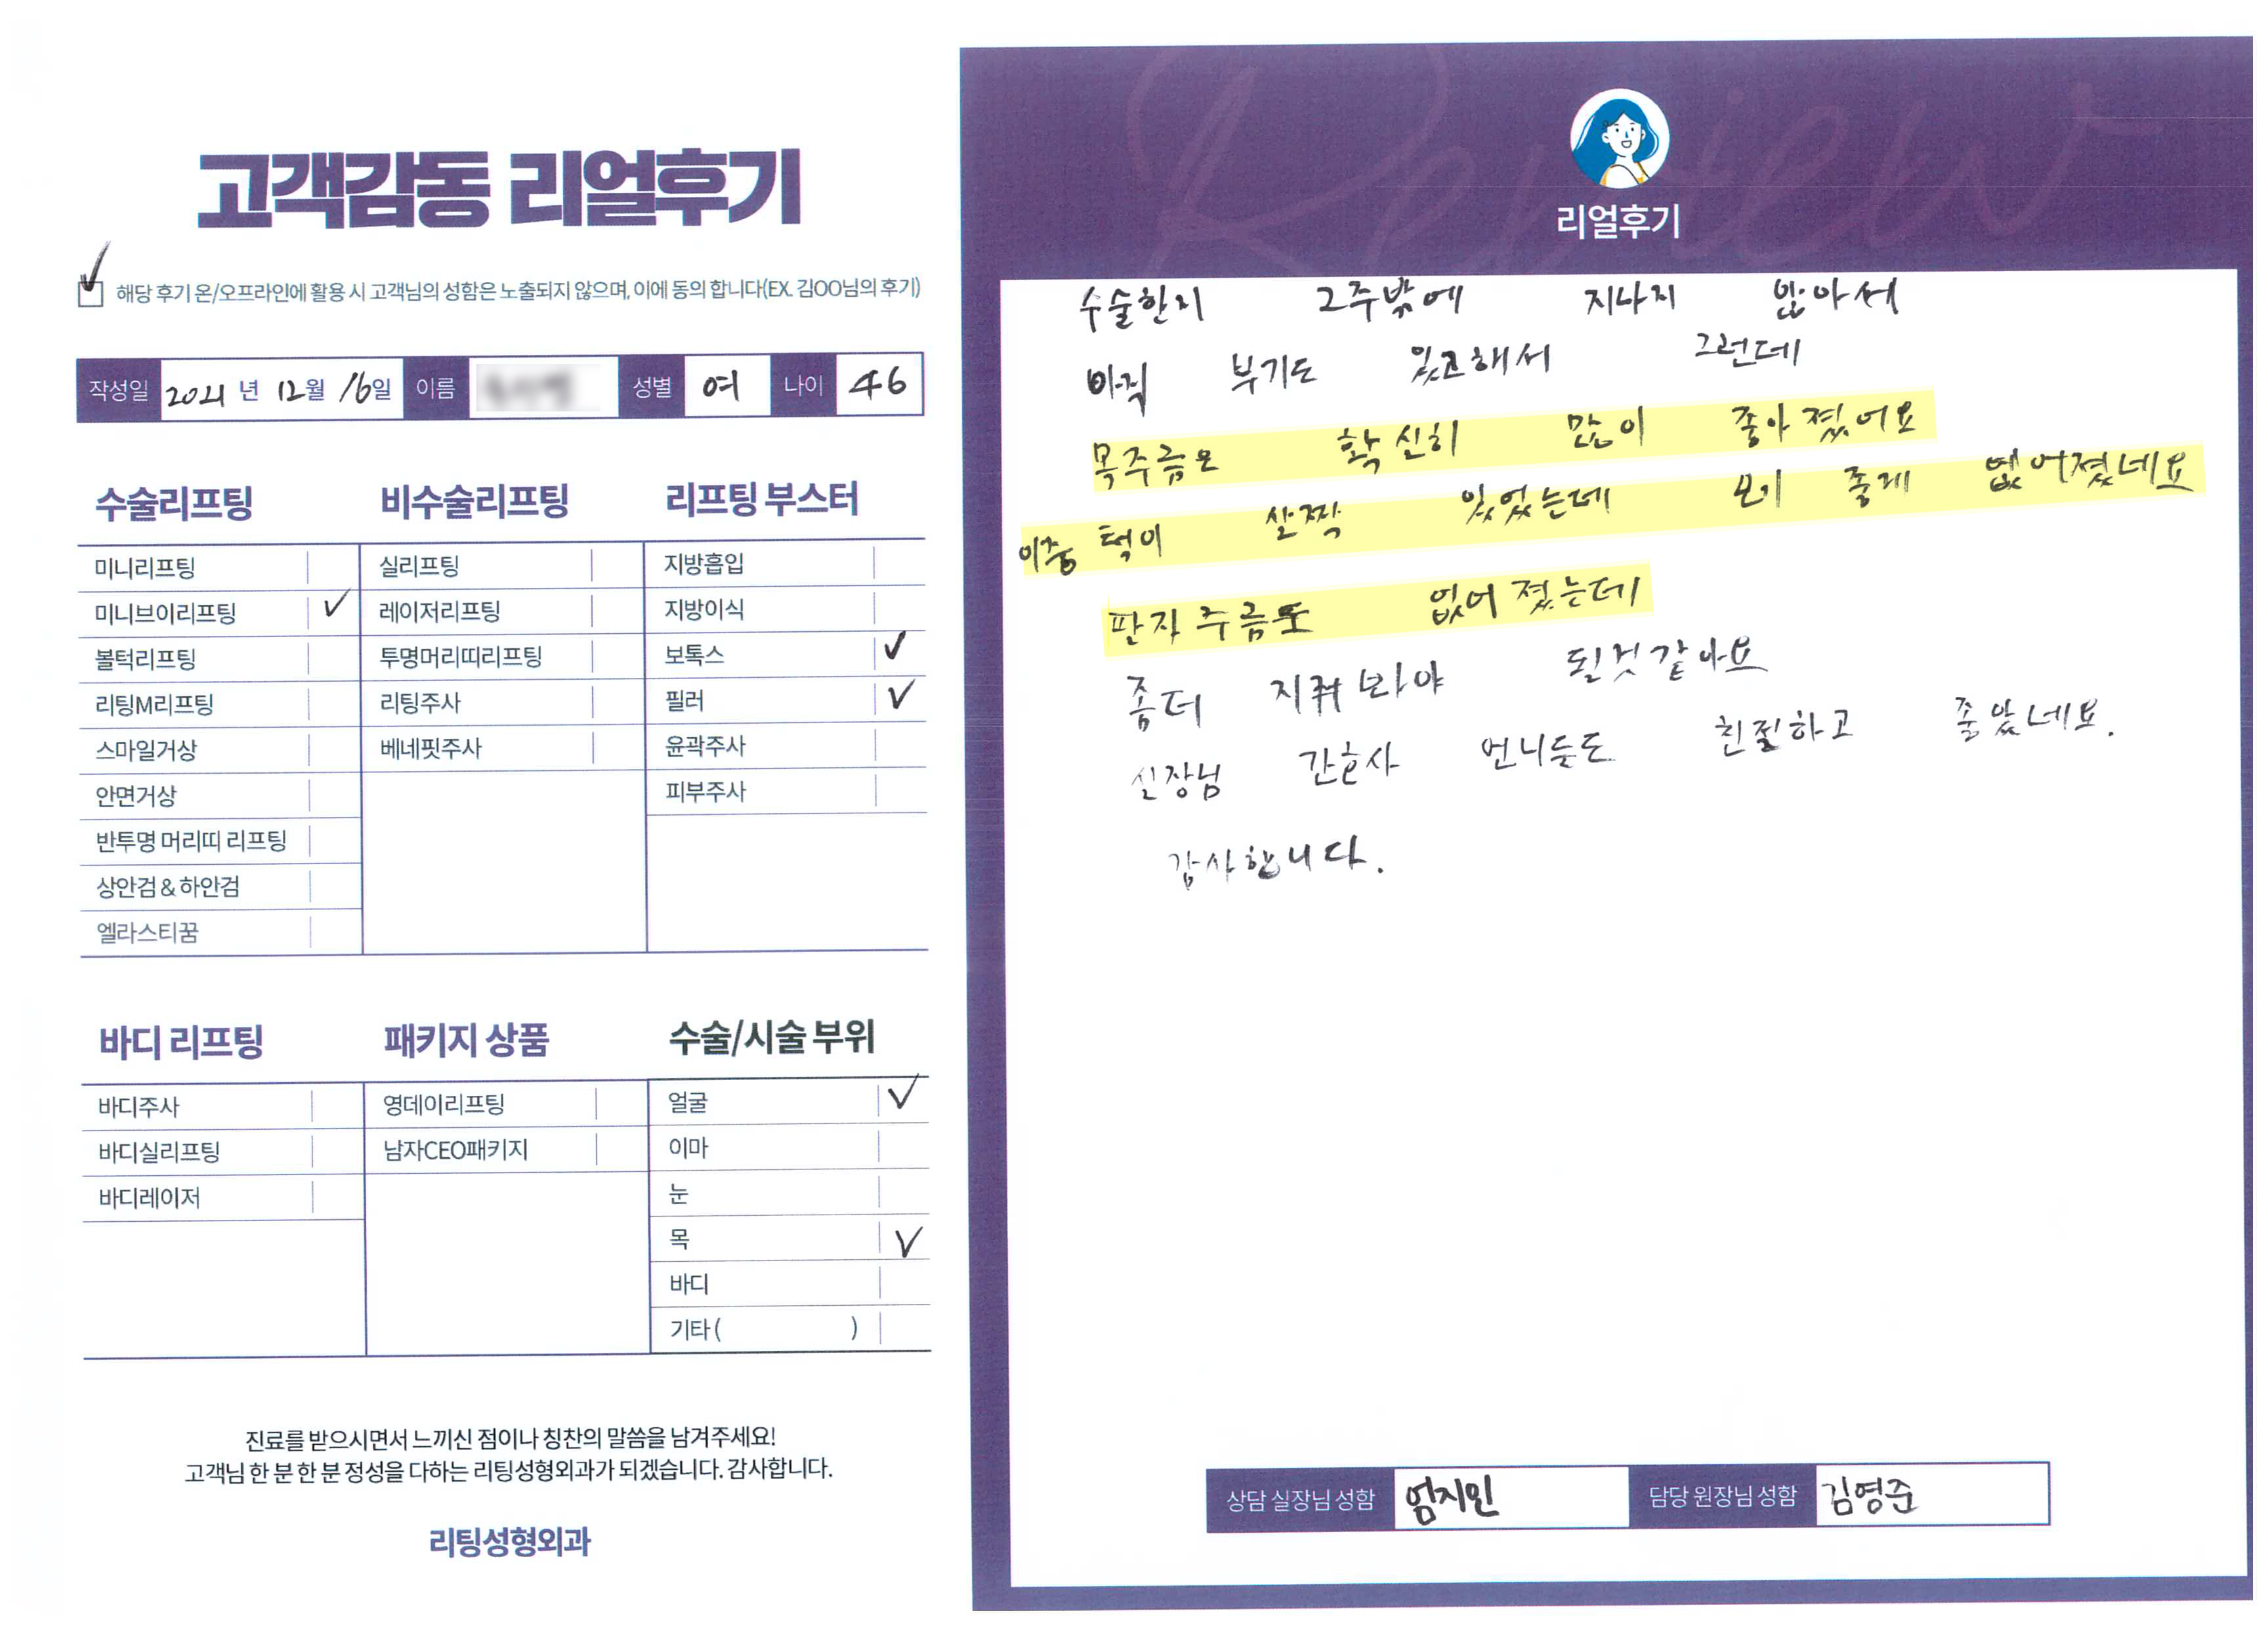 고객감동 리얼후기
해당 후기 온/오프라인에 활용 시 고객님의 성함은 노출되지 않으며, 이에 동의 합니다(EX. 김OO님의 후기)
작성일 2021 년 12월 16일 이름 성별 여 나이 46
수술리프팅
미니리프팅
미니브이리프팅 ✓
볼턱리프팅
리팅M리프팅
스마일거상
안면거상
반투명 머리띠 리프팅
상안검 & 하안검
엘라스티꿈
비수술리프팅
실리프팅
레이저리프팅
투명머리띠리프팅
리팅주사
베네핏주사
리프팅 부스터
지방흡입
지방이식
보톡스 ✓
필러 ✓
윤곽주사
피부주사
바디 리프팅
바디주사
바디실리프팅
바디레이저
패키지 상품
영데이리프팅
남자CEO패키지
수술/시술 부위
얼굴 ✓
이마
눈
목 ✓
바디
기타 ( )
진료를 받으시면서 느끼신 점이나 칭찬의 말씀을 남겨주세요!
고객님 한 분 한 분 정성을 다하는 리팅성형외과가 되겠습니다. 감사합니다.
리팅성형외과
Review
리얼후기
수술한지 2주밖에 지나지 않아서
아직 부기도 있고해서 그런데
목주름은 확실히 많이 좋아졌어요
이중 턱이 살짝 있었는데 보기 좋게 없어졌네요
팔자 주름도 없어 졌는데
좀더 지켜봐야 될것같아요
실장님 간호사 언니들도 친절하고 좋았네요.
감사합니다.
상담 실장님 성함 엄지인 담당 원장님 성함 김영준